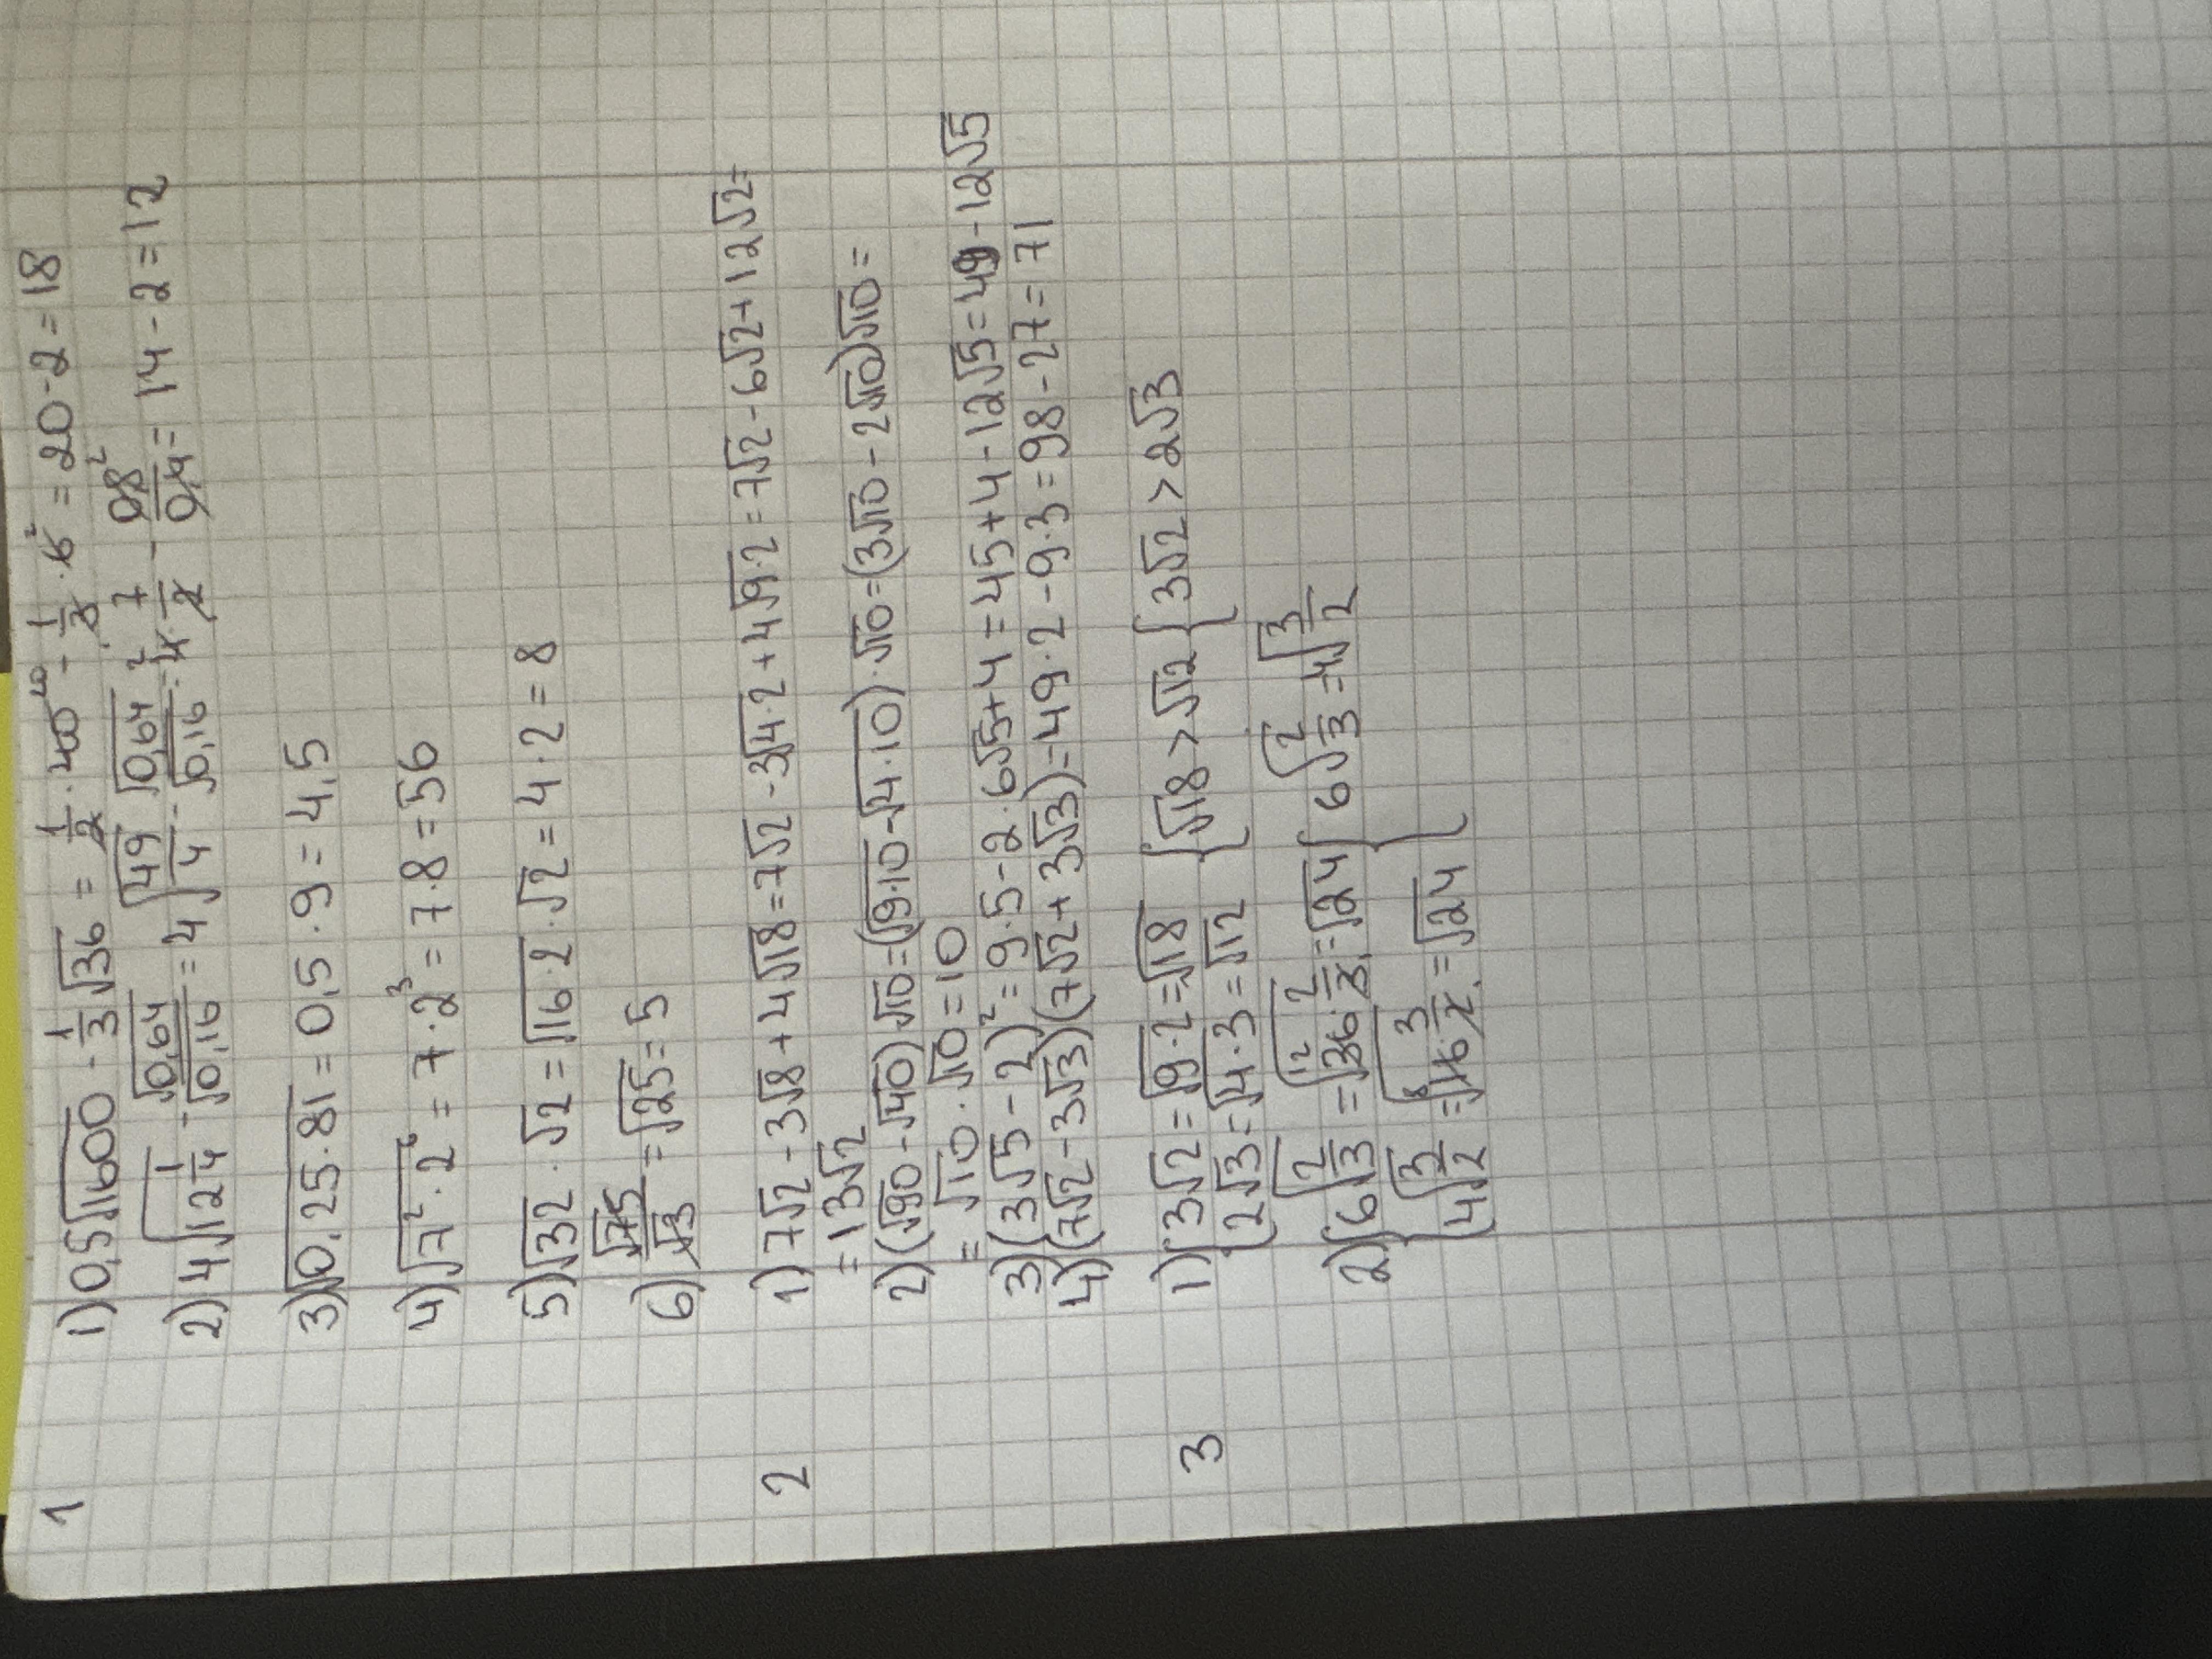 1
1) 0,5√1600 - 1/3√36 = 1/2 · 40 - 1/3 · 6² = 20 - 2 = 18
2) 4√12 1/4 - √0,64/√0,16 = 4√49/4 - √0,64/√0,16 = 4² · 7/2 - 0,8²/0,4 = 14 - 2 = 12
3) √0,25·81 = 0,5 · 9 = 4,5
4) √7²·2⁶ = 7·2³ = 7·8 = 56
5) √32 · √2 = √16·2 · √2 = 4·2 = 8
6) √75/√3 = √25 = 5
2
1) 7√2 - 3√8 + 4√18 = 7√2 - 3√4·2 + 4√9·2 = 7√2 - 6√2 + 12√2 =
= 13√2
2) (√90 - √40)√10 = (√9·10 - √4·10)·√10 = (3√10 - 2√10)√10 =
= √10 · √10 = 10
3) (3√5 - 2)² = 9·5 - 2·6√5 + 4 = 45 + 4 - 12√5 = 49 - 12√5
4) (7√2 - 3√3)(7√2 + 3√3) = 49·2 - 9·3 = 98 - 27 = 71
3
1) { 3√2 = √9·2 = √18 { √18 > √12 { 3√2 > 2√3
{ 2√3 = √4·3 = √12
2) { 6√2/3 = √36¹²·2/3₁ = √24 { 6√2/3 = 4√3/2
{ 4√3/2 = √16⁸·3/2₁ = √24 {